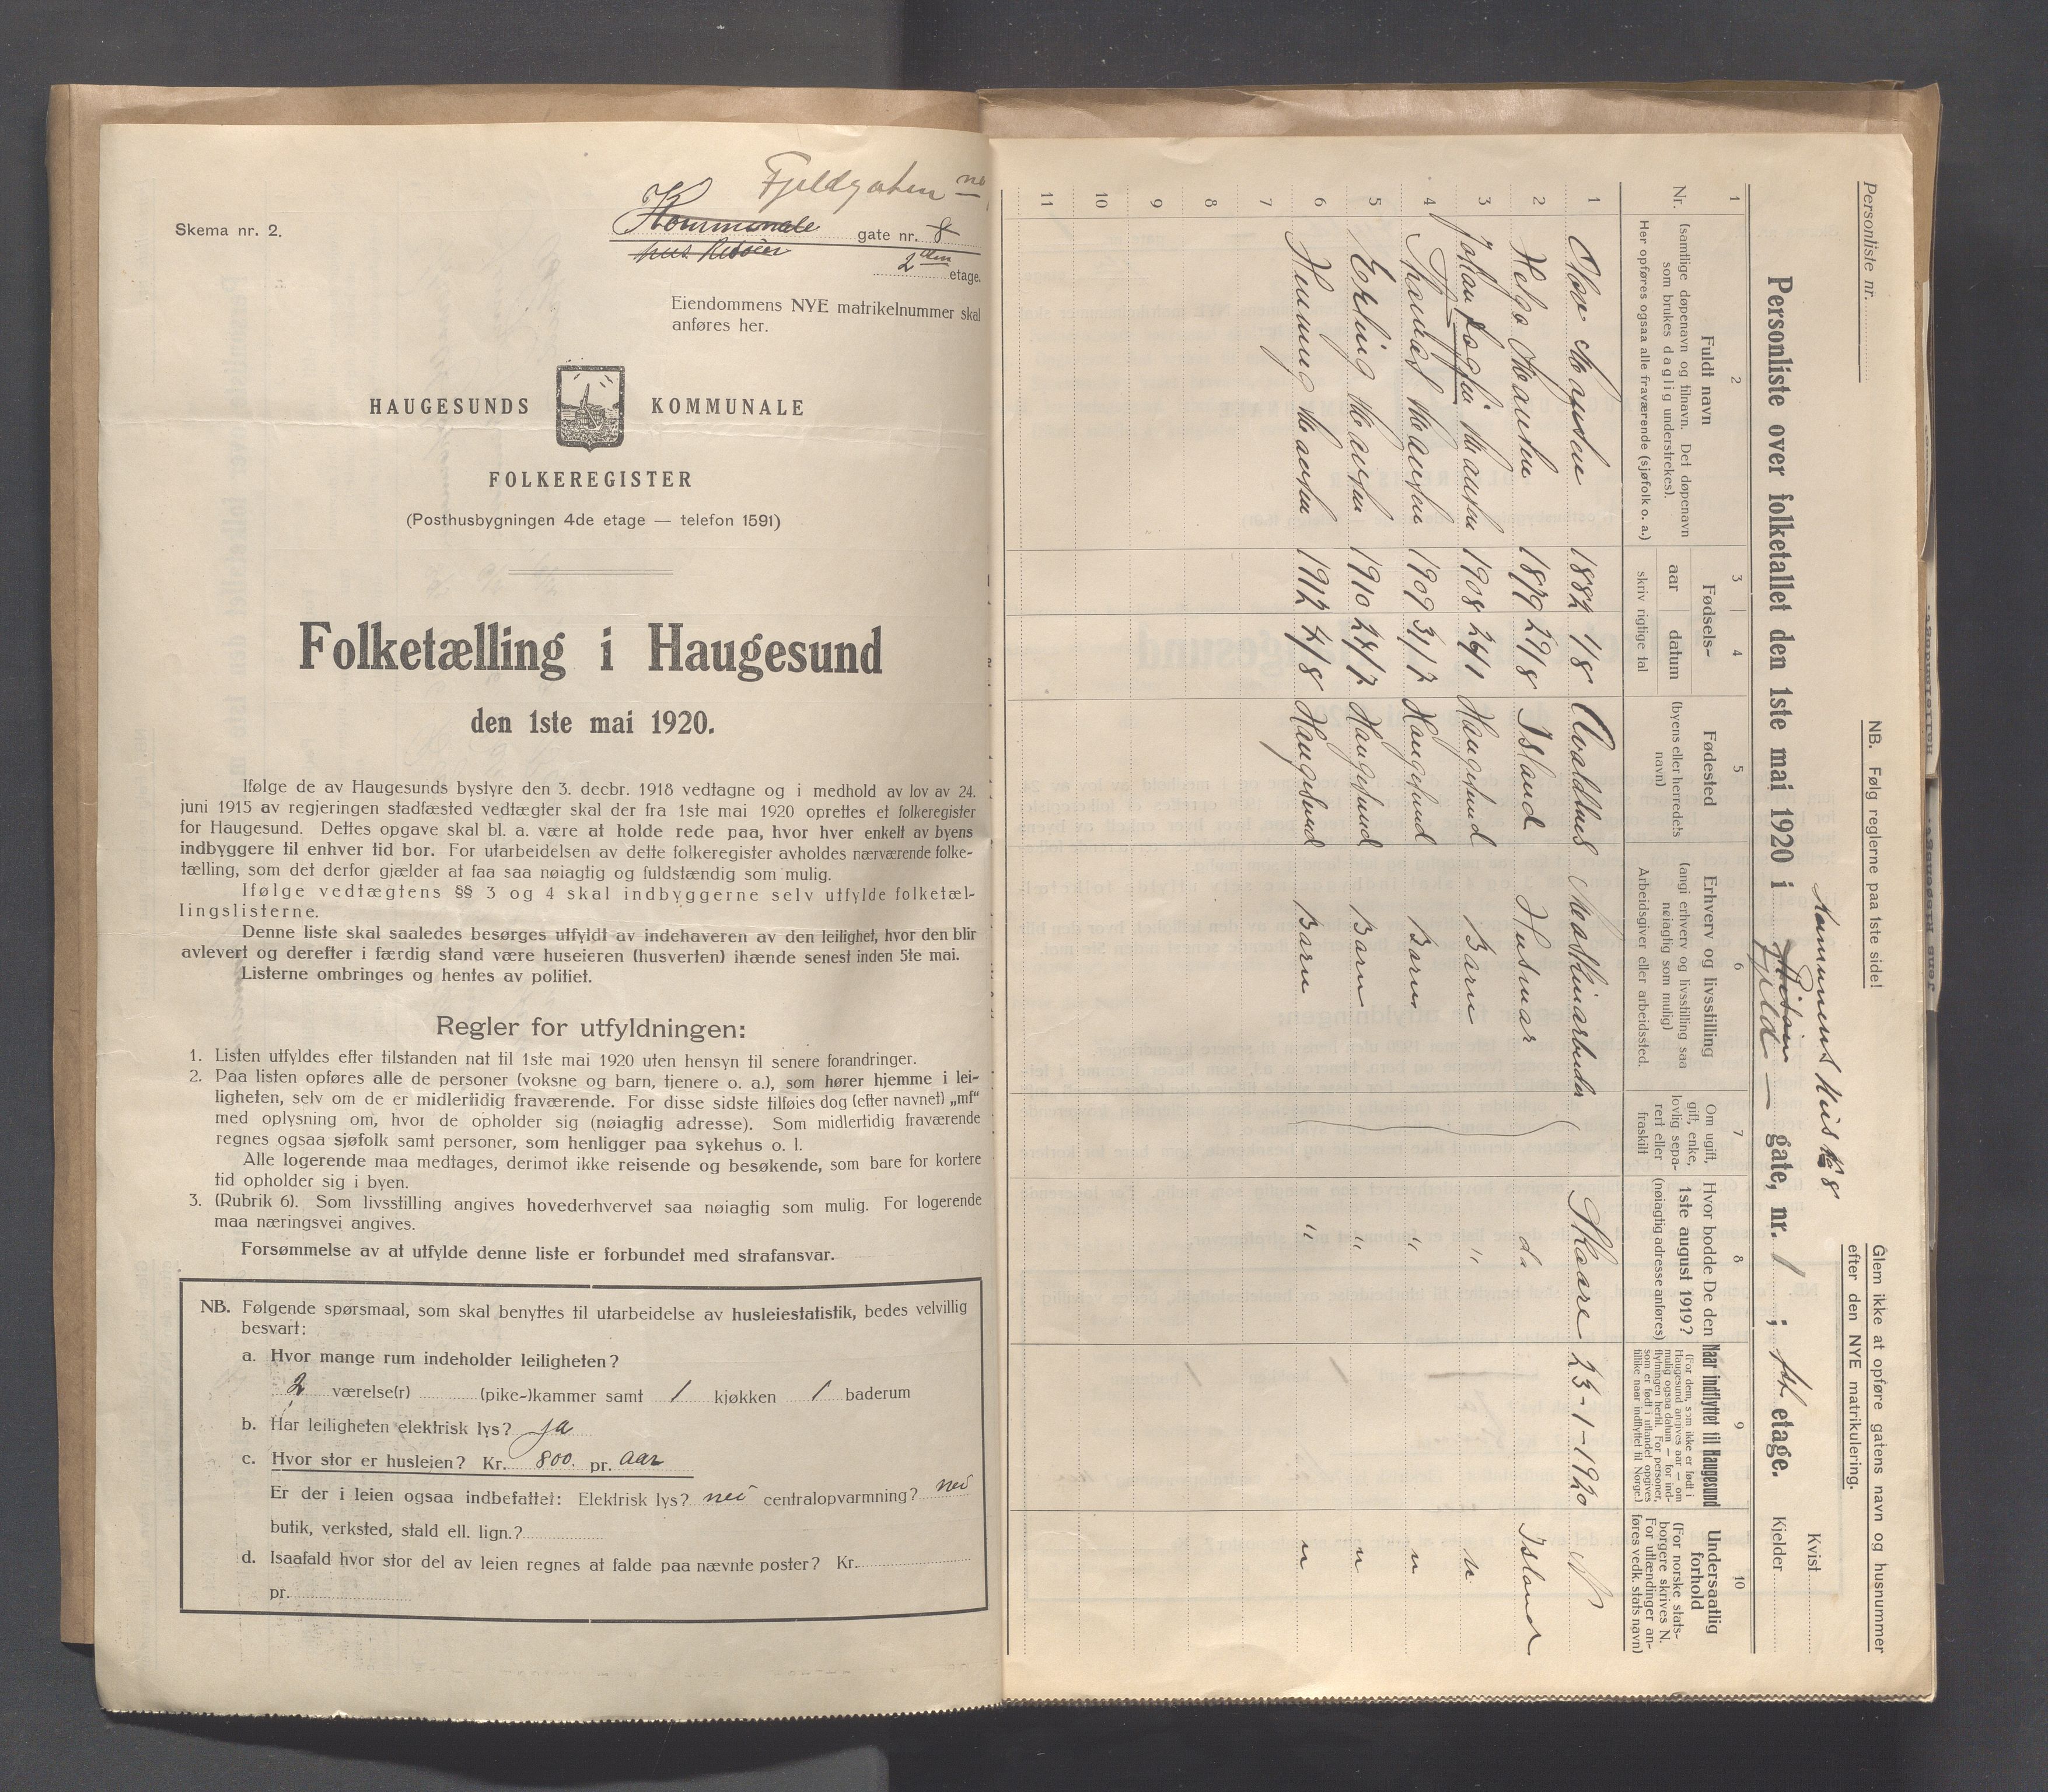 Fjeldgaten no
Kommunale gate nr. 8
hus Risøien
2den etage.
Skema nr. 2.
Eiendommens NYE matrikelnummer skal
anføres her.
HAUGESUNDS KOMMUNALE
FOLKEREGISTER
(Posthusbygningen 4de etage — telefon 1591)
Folketælling i Haugesund
den 1ste mai 1920.
Ifølge de av Haugesunds bystyre den 3. decbr. 1918 vedtagne og i medhold av lov av 24.
juni 1915 av regjeringen stadfæsted vedtægter skal der fra 1ste mai 1920 oprettes et folkeregister
for Haugesund. Dettes opgave skal bl. a. være at holde rede paa, hvor hver enkelt av byens
indbyggere til enhver tid bor. For utarbeidelsen av dette folkeregister avholdes nærværende folke-
tælling, som det derfor gjælder at faa saa nøiagtig og fuldstændig som mulig.
Ifølge vedtægtens §§ 3 og 4 skal indbyggerne selv utfylde folketæl-
lingslisterne.
Denne liste skal saaledes besørges utfyldt av indehaveren av den leilighet, hvor den blir
avlevert og derefter i færdig stand være huseieren (husverten) ihænde senest inden 5te mai.
Listerne ombringes og hentes av politiet.
Regler for utfyldningen:
1. Listen utfyldes efter tilstanden nat til 1ste mai 1920 uten hensyn til senere forandringer.
2. Paa listen opføres alle de personer (voksne og barn, tjenere o. a.), som hører hjemme i lei-
ligheten, selv om de er midlertidig fraværende. For disse sidste tilføies dog (efter navnet) „mf"
med oplysning om, hvor de opholder sig (nøiagtig adresse). Som midlertidig fraværende
regnes ogsaa sjøfolk samt personer, som henligger paa sykehus o. l.
Alle logerende maa medtages, derimot ikke reisende og besøkende, som bare for kortere
tid opholder sig i byen.
3. (Rubrik 6). Som livsstilling angives hovederhvervet saa nøiagtig som mulig. For logerende
maa næringsvei angives.
Forsømmelse av at utfylde denne liste er forbundet med strafansvar.
NB. Følgende spørsmaal, som skal benyttes til utarbeidelse av husleiestatistik, bedes velvillig
besvart:
a. Hvor mange rum indeholder leiligheten?
2 værelse(r) (pike-)kammer samt 1 kjøkken 1 baderum
b. Har leiligheten elektrisk lys? ja
c. Hvor stor er husleien? Kr. 800. pr. aar
Er der i leien ogsaa indbefattet: Elektrisk lys? nei centralopvarmning? nei
butik, verksted, stald ell. lign.?
d. Isaafald hvor stor del av leien regnes at falde paa nævnte poster? Kr.
pr.
Personliste nr.
NB. Følg reglerne paa 1ste side!
Glem ikke at opføre gatens navn og husnummer
efter den NYE matrikulering.
Kommunens Hus No 8
Personliste over folketallet den 1ste mai 1920 i Risøien Fjeld — gate, nr. 1 ; etage.
Kvist
Kjelder
1 2 3 4 5 6 7 8 9 10
Nr.
Fuldt navn
(samtlige døpenavn og tilnavn. Det døpenavn
som brukes daglig understrekes).
Her opføres ogsaa alle fraværende (sjøfolk o. a.)
Fødsels-
aar datum
skriv rigtige tal
Fødested
(byens eller herredets
navn)
Erhverv og livsstilling
(angi erhverv og livsstilling saa
nøiagtig som mulig)
Arbeidsgiver eller arbeidssted.
Om ugift,
gift, enke,
lovlig sepa-
rert eller
fraskilt
Hvor bodde De den
1ste august 1919?
(nøiagtig adresse anføres)
Naar indflyttet til Haugesund
(For dem, som ikke er født i
Haugesund angives aar — om
mulig ogsaa datum — for ind-
flytningen hertil. For personer,
som er født i utlandet opgives
tillike naar indflyttet til Norge.)
Undersaatlig
forhold
(For norske stats-
borgere skrives N.
For utlændinger an-
føres vedk. stats navn)
1 Olov Hansen 1882 1/8 Avaldsnes Maskinarbeider Skaare 23-1-1920 N
2 Helga Hansen 1879 29/8 Island Husmor do Island
3 Johan Hansen 1908 24/1 Haugesund Barn " n
4 Hansen 1909 31/12 Haugesund Barn " n
5 Erling Hansen 1910 27/12 Haugesund Barn " n
6 Henning Hansen 1912 4/8 Haugesund Barn " n
7
8
9
10
11